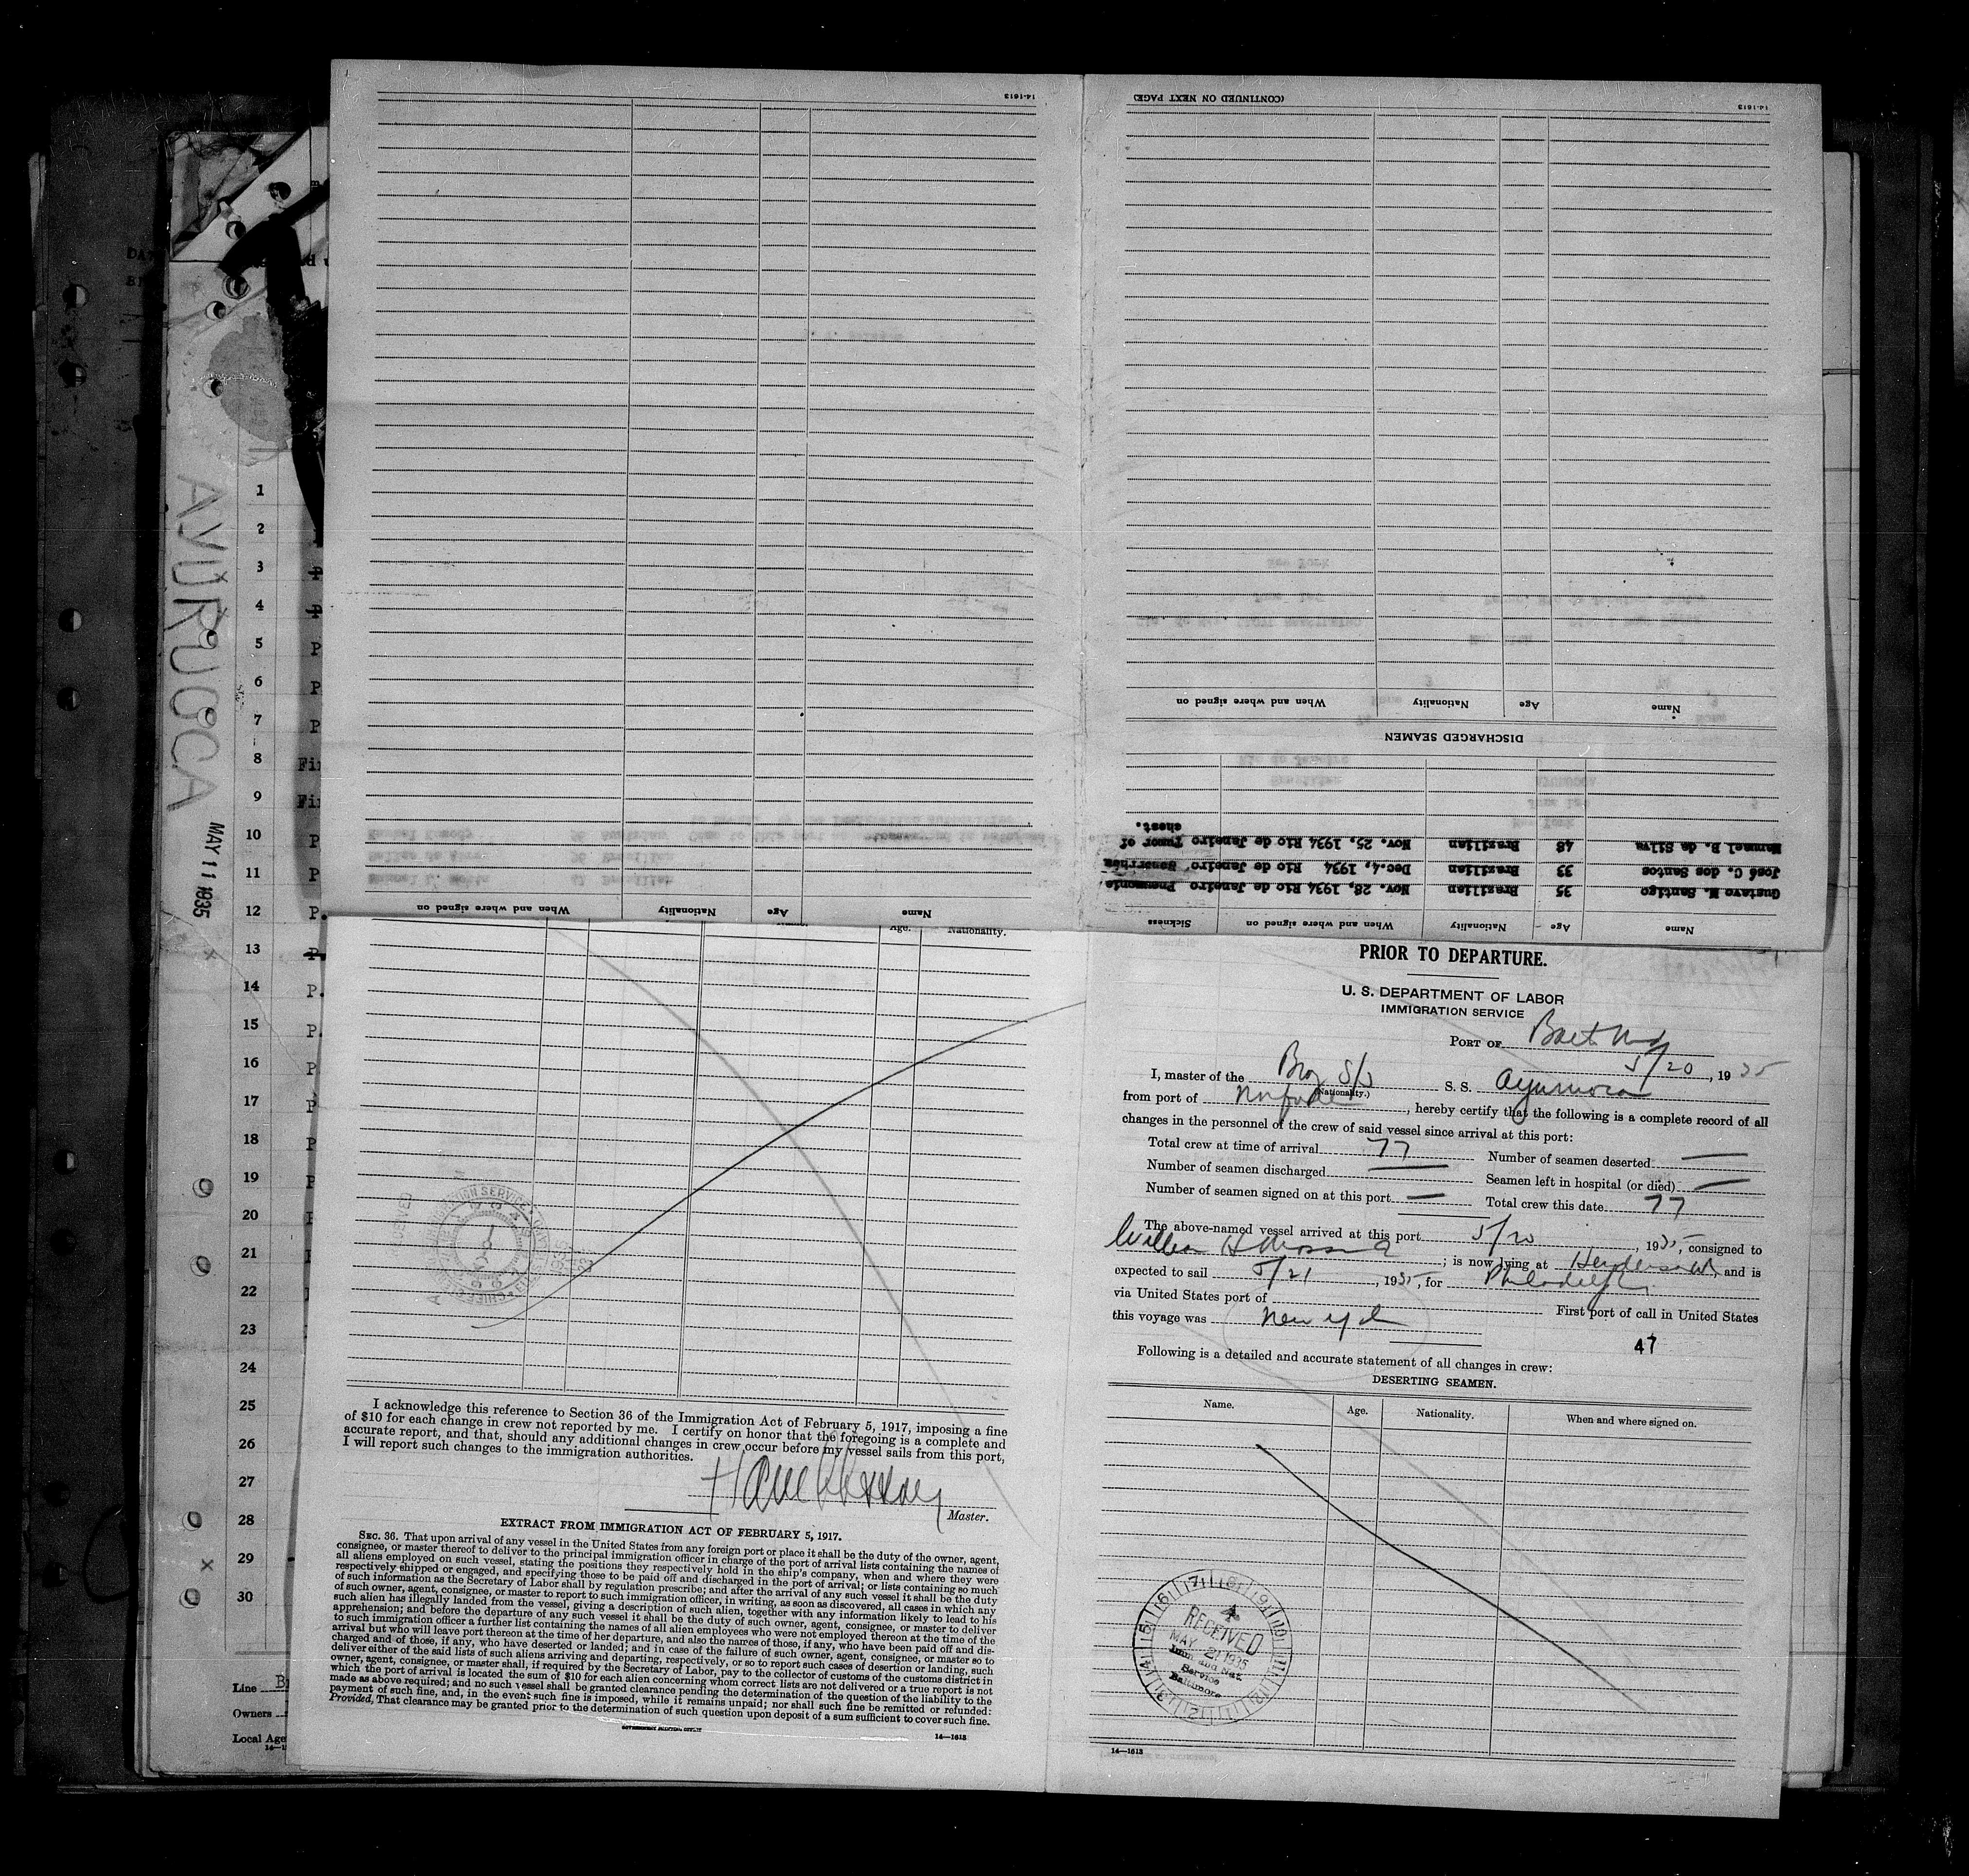 14-1613
When and where signed on Nationality Age Name
14-1613
(CONTINUED ON NEXT PAGE)
Name Age Nationality When and where signed on
DISCHARGED SEAMEN
Manuel B. da Silva 48 Brazilian Nov. 25, 1934 Rio de Janeiro Tumor of
chest.
José C. dos Santos 33 Brazilian Dec. 4, 1934 Rio de Janeiro
Gustavo M. Santigo 35 Brazilian Nov. 28, 1934 Rio de Janeiro Pneumonia
Name Age Nationality When and where signed on Sickness
AYURUOCA
MAY 11 1935
1
2
3
4
5
6
7
8 Fi
9 Fi
10 P
11 P
12 P.
13
14 P.
15 P.
16 P
17 P
18 P
19
20
21
22
23
24
25
26
27
28
29
30
Line
Owners
Local Age
Age. Nationality.
I acknowledge this reference to Section 36 of the Immigration Act of February 5, 1917, imposing a fine
of $10 for each change in crew not reported by me. I certify on honor that the foregoing is a complete and
accurate report, and that, should any additional changes in crew occur before my vessel sails from this port,
I will report such changes to the immigration authorities.
Master.
EXTRACT FROM IMMIGRATION ACT OF FEBRUARY 5, 1917.
SEC. 36. That upon arrival of any vessel in the United States from any foreign port or place it shall be the duty of the owner, agent,
consignee, or master thereof to deliver to the principal immigration officer in charge of the port of arrival lists containing the names of
all aliens employed on such vessel, stating the positions they respectively hold in the ship's company, when and where they were
respectively shipped or engaged, and specifying those to be paid off and discharged in the port of arrival; or lists containing so much
of such information as the Secretary of Labor shall by regulation prescribe; and after the arrival of any such vessel it shall be the duty
of such owner, agent, consignee, or master to report to such immigration officer, in writing, as soon as discovered, all cases in which any
such alien has illegally landed from the vessel, giving a description of such alien, together with any information likely to lead to his
apprehension; and before the departure of any such vessel it shall be the duty of such owner, agent, consignee, or master to deliver
to such immigration officer a further list containing the names of all alien employees who were not employed thereon at the time of the
arrival but who will leave port thereon at the time of her departure, and also the names of those, if any, who have been paid off and dis-
charged and of those, if any, who have deserted or landed; and in case of the failure of such owner, agent, consignee, or master so to
deliver either of the said lists of such aliens arriving and departing, respectively, or so to report such cases of desertion or landing, such
owner, agent, consignee, or master shall, if required by the Secretary of Labor, pay to the collector of customs of the customs district in
which the port of arrival is located the sum of $10 for each alien concerning whom correct lists are not delivered or a true report is not
made as above required; and no such vessel shall be granted clearance pending the determination of the question of the liability to the
payment of such fine, and, in the event such fine is imposed, while it remains unpaid; nor shall such fine be remitted or refunded:
Provided, That clearance may be granted prior to the determination of such question upon deposit of a sum sufficient to cover such fine.
14—1613
PRIOR TO DEPARTURE.
U. S. DEPARTMENT OF LABOR
IMMIGRATION SERVICE
PORT OF Balt Md
5/20, 1935
I, master of the Braz S/S S. S. Ayuruoca
(Nationality.)
from port of Norfolk, hereby certify that the following is a complete record of all
changes in the personnel of the crew of said vessel since arrival at this port:
Total crew at time of arrival 77 Number of seamen deserted —
Number of seamen discharged — Seamen left in hospital (or died) —
Number of seamen signed on at this port — Total crew this date 77
The above-named vessel arrived at this port 5/20, 1935, consigned to
William H ; is now lying at Henderson Wf, and is
expected to sail 5/21, 1935, for Philadelphia
via United States port of First port of call in United States
this voyage was New York
47
Following is a detailed and accurate statement of all changes in crew:
DESERTING SEAMEN.
Name. Age. Nationality. When and where signed on.
RECEIVED
MAY 21 1935
Imm and Nat.
Service
Baltimore
14—1613